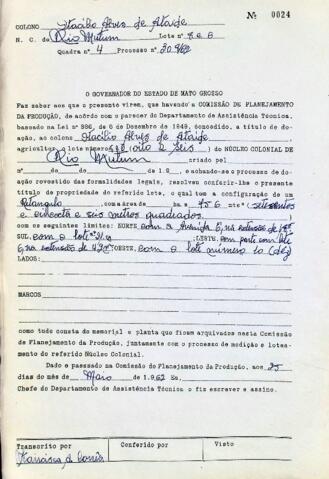 Nº 0024
COLONO Otacilio Alves de Ataide
N. C. do Rio Mutum Lote nº 8 e 6
Quadra nº 4 Processo nº 30.962
O GOVERNADOR DO ESTADO DE MATO GROSSO
Faz saber aos que o presente virem, que havendo a COMISSÃO DE PLANEJAMENTO
DA PRODUÇÃO, de acôrdo com o parecer do Departamento de Assistência Técnica,
baseado na Lei nº 336, de 6 de Dezembro de 1949, concedido, a título de doa-
ção, ao colono Otacilio Alves de Ataide,
agricultor, o lote nº 8 e 6 (oito e seis) do NÚCLEO COLONIAL DE
Rio Mutum criado pel
nº de de de 19 e achando-se o processo de doa-
ção revestido das formalidades legais, resolveu conferir-lhe o presente
título de propriedade do referido lote, o qual tem a configuração de um
Retangulo com a área de ha s 756 mts² (setecentos
e cincoenta e seis metros quadrados)
com os seguintes limites: NORTE com a Avenida E, na extensão de
SUL, com o lote nº LESTE, com parte com lote
6, na extensão de OESTE, com o lote número 10 (dez)
LADOS:
MARCOS
como tudo consta do memorial e planta que ficam arquivados nesta Comissão
de Planejamento da Produção, juntamente com o processo de medição e lotea-
mento do referido Núcleo Colonial.
Dado e passado na Comissão de Planejamento da Produção, aos 25
dias do mês de Maio de 1.962 Eu,
Chefe do Departamento de Assistência Técnica o fiz escrever e assino.
Transcrito por Conferido por Visto
Francisca d.